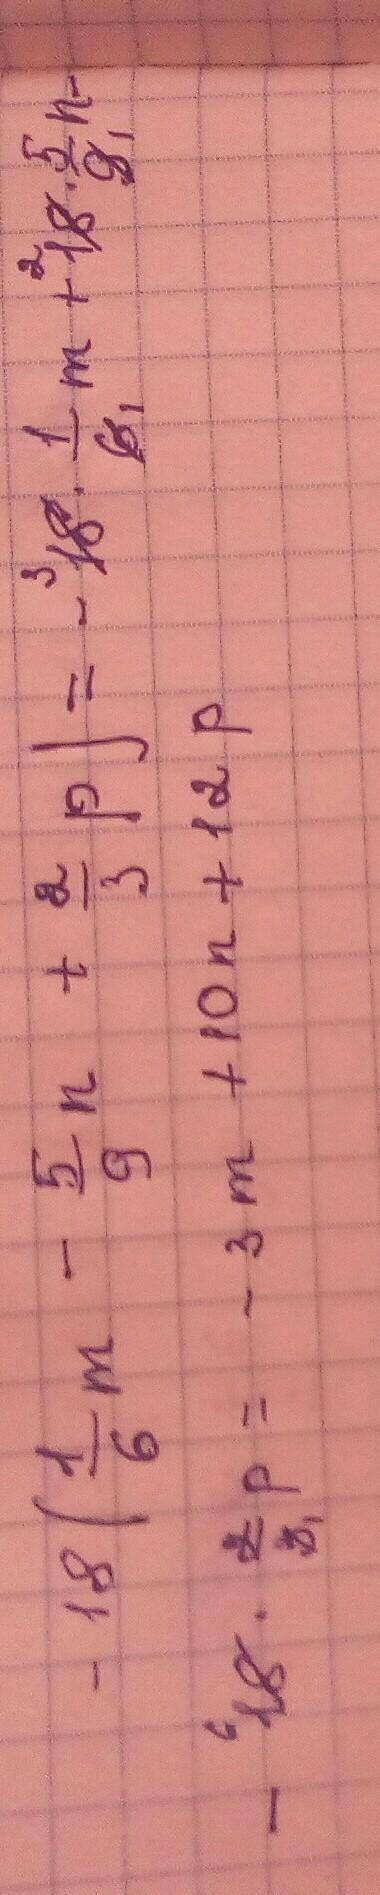 - 18 ( 1/6 m - 5/9 n + 2/3 p ) = - ³18 · 1/6₁ m + ²18 · 5/9₁ n -
- ⁶18 · 2/3₁ p = - 3m + 10n + 12p